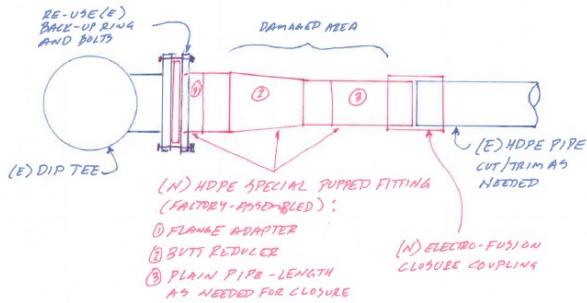 RE-USE (E)
BACK-UP RING
AND BOLTS
DAMAGED AREA
①
②
③
(E) DIP TEE
(E) HDPE PIPE
CUT/TRIM AS
NEEDED
(N) HDPE SPECIAL PUPPED FITTING
(FACTORY-ASSEMBLED):
① FLANGE ADAPTER
② BUTT REDUCER
③ PLAIN PIPE-LENGTH
AS NEEDED FOR CLOSURE
(N) ELECTRO-FUSION
CLOSURE COUPLING